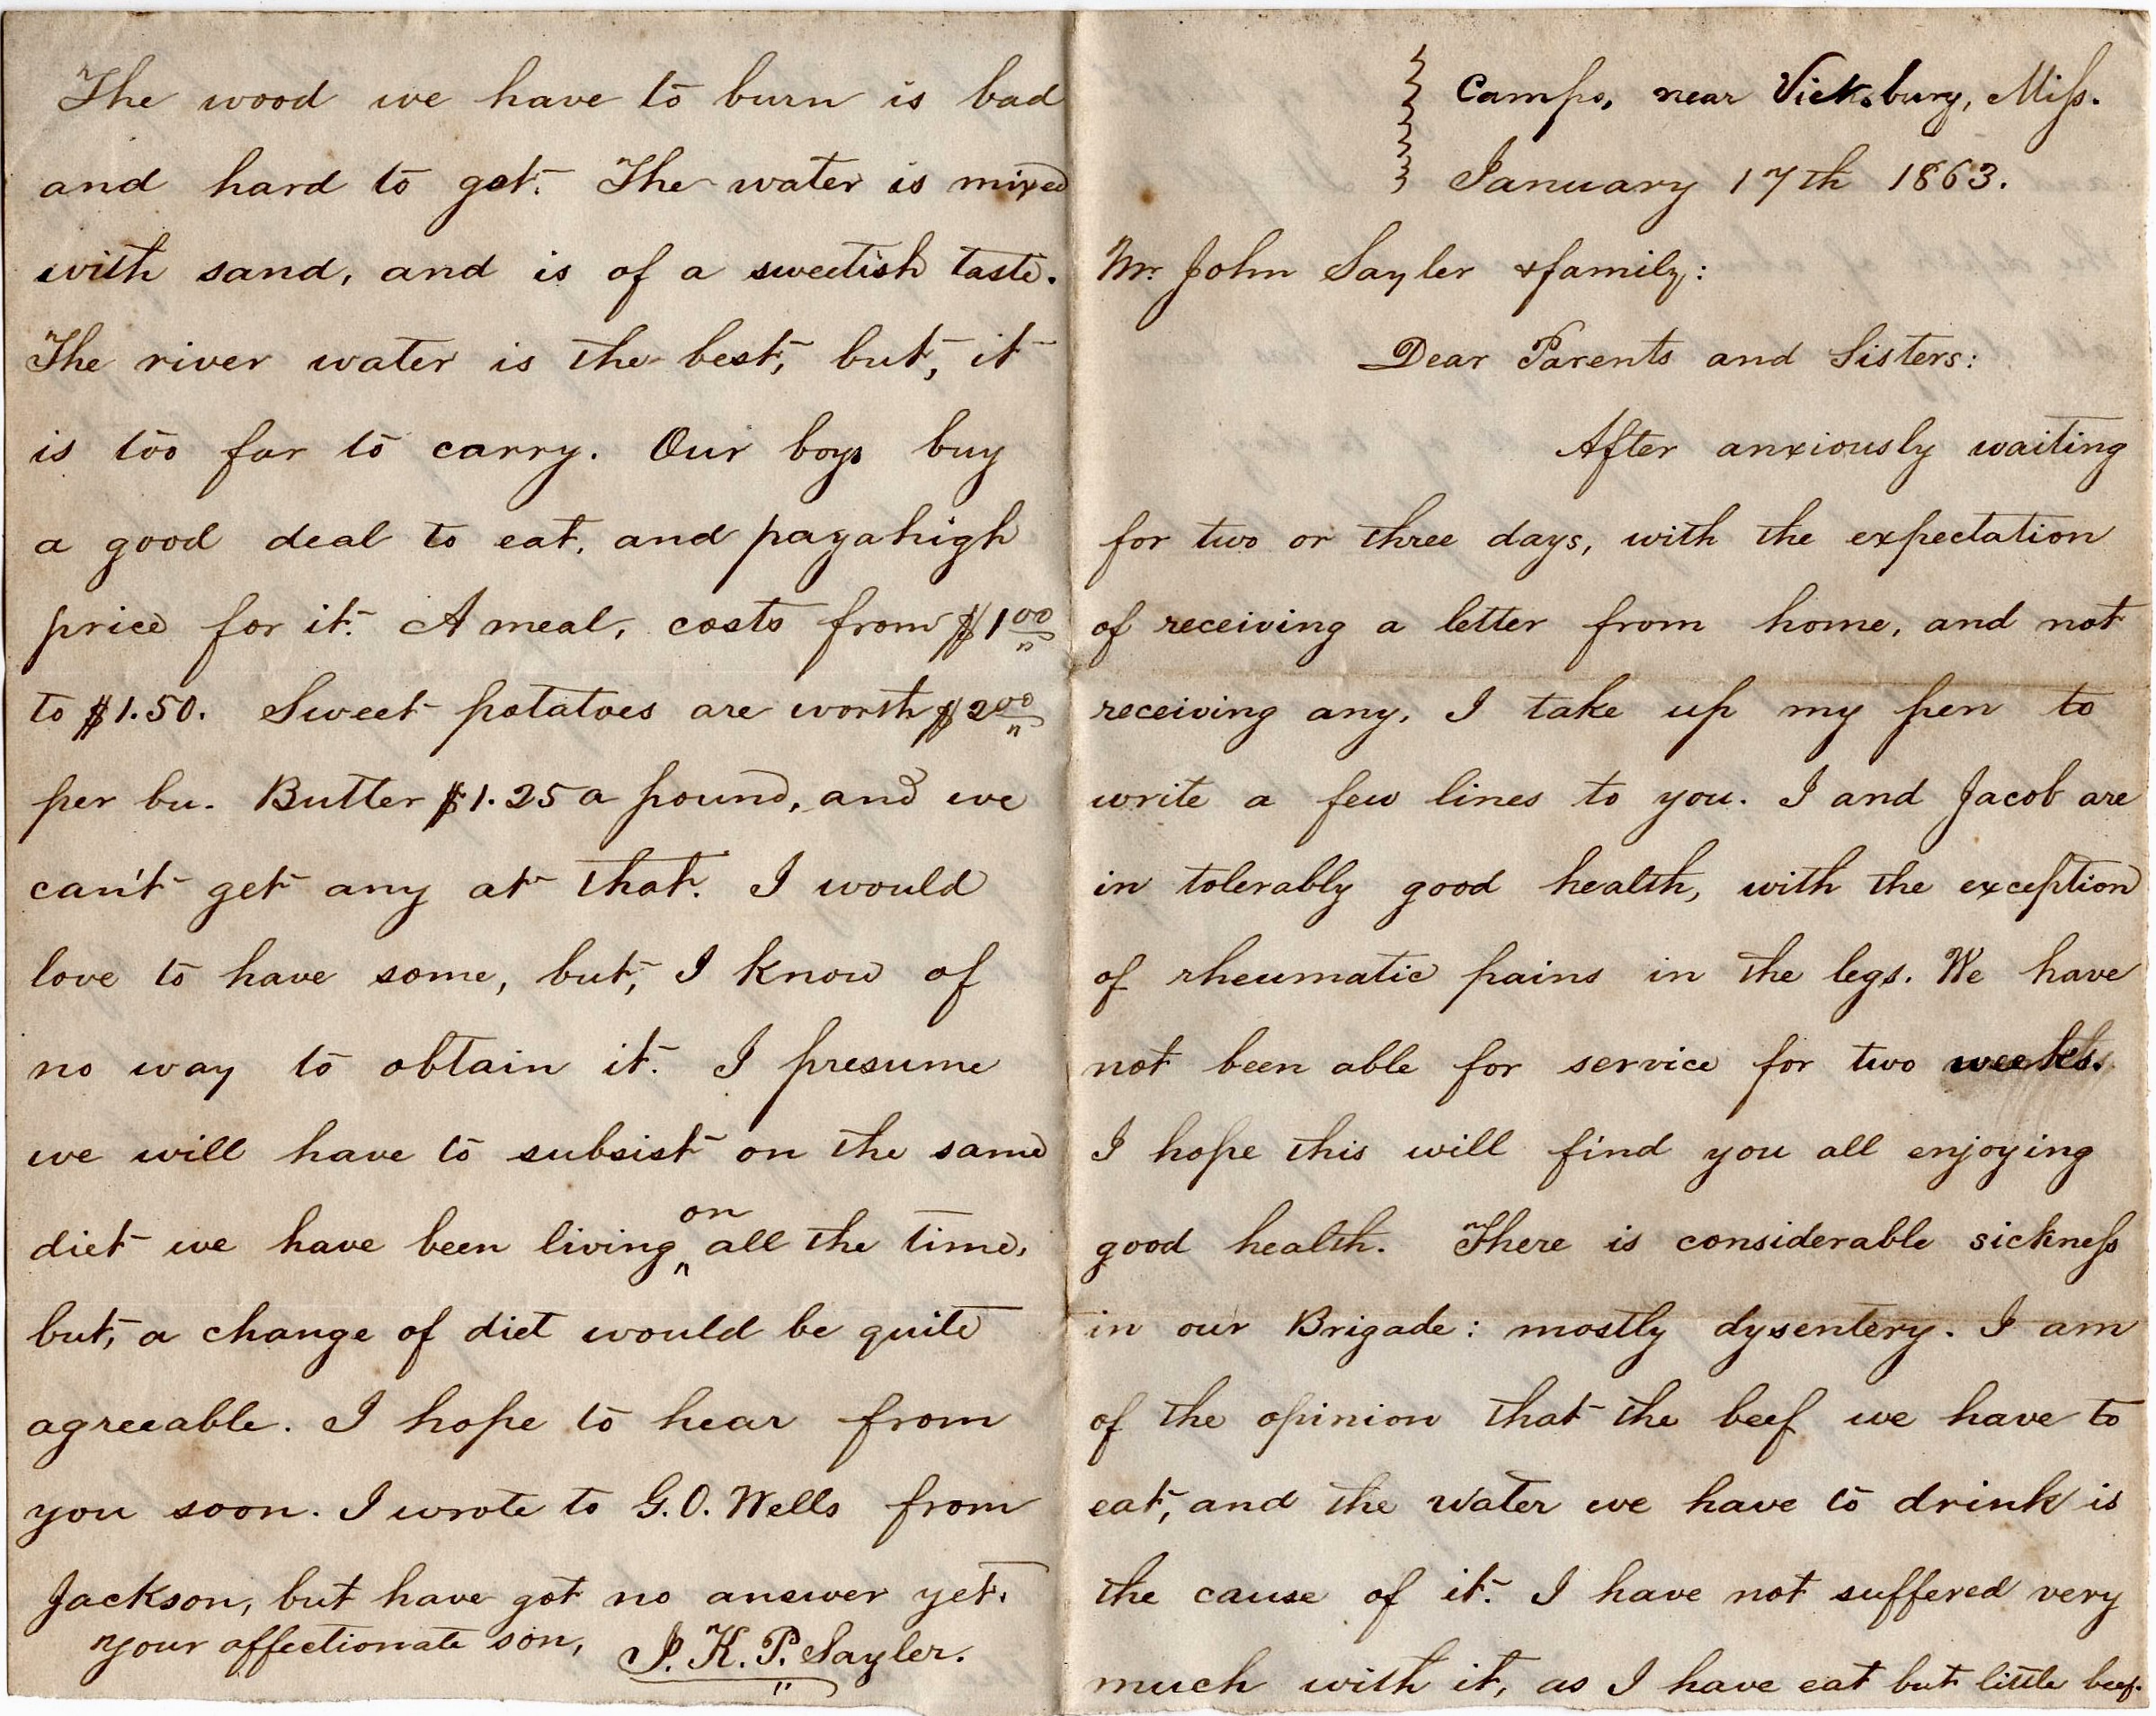 Camp, near Vicksburg, Miss.
January 17th 1863.
Mr. John Sayler & family:
Dear Parents and Sisters:
After anxiously waiting
for two or three days, with the expectation
of receiving a letter from home, and not
receiving any, I take up my pen to
write a few lines to you. I and Jacob are
in tolerably good health, with the exception
of rheumatic pains in the legs. We have
not been able for service for two weeks.
I hope this will find you all enjoying
good health. There is considerable sickness
in our Brigade: mostly dysentery. I am
of the opinion that the beef we have to
eat, and the water we have to drink is
the cause of it. I have not suffered very
much with it, as I have eat but little beef.
The wood we have to burn is bad
and hard to get. The water is mixed
with sand, and is of a sweetish taste.
The river water is the best, but, it
is too far to carry. Our boys buy
a good deal to eat, and pay a high
price for it. A meal, costs from $1 00
to $1.50. Sweet potatoes are worth $2 00
per bu. Butter $1.25 a pound, and we
can't get any at that. I would
love to have some, but, I know of
no way to obtain it. I presume
we will have to subsist on the same
diet we have been living on all the time,
but, a change of diet would be quite
agreeable. I hope to hear from
you soon. I wrote to G.O. Wells from
Jackson, but have got no answer yet.
Your affectionate son, J. K. P. Sayler.